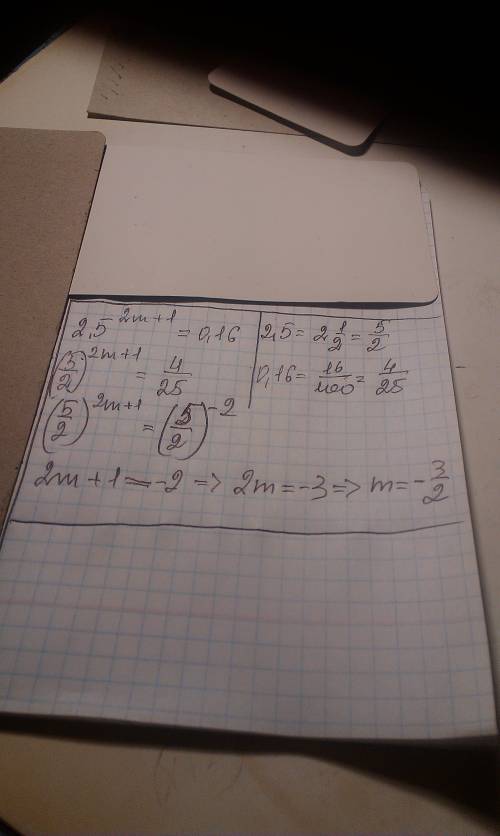 2,5^{2m+1} = 0,16 | 2,5 = 2\frac{1}{2} = \frac{5}{2}
(\frac{5}{2})^{2m+1} = \frac{4}{25} | 0,16 = \frac{16}{100} = \frac{4}{25}
(\frac{5}{2})^{2m+1} = (\frac{5}{2})^{-2}
2m+1 = -2 => 2m = -3 => m = -\frac{3}{2}